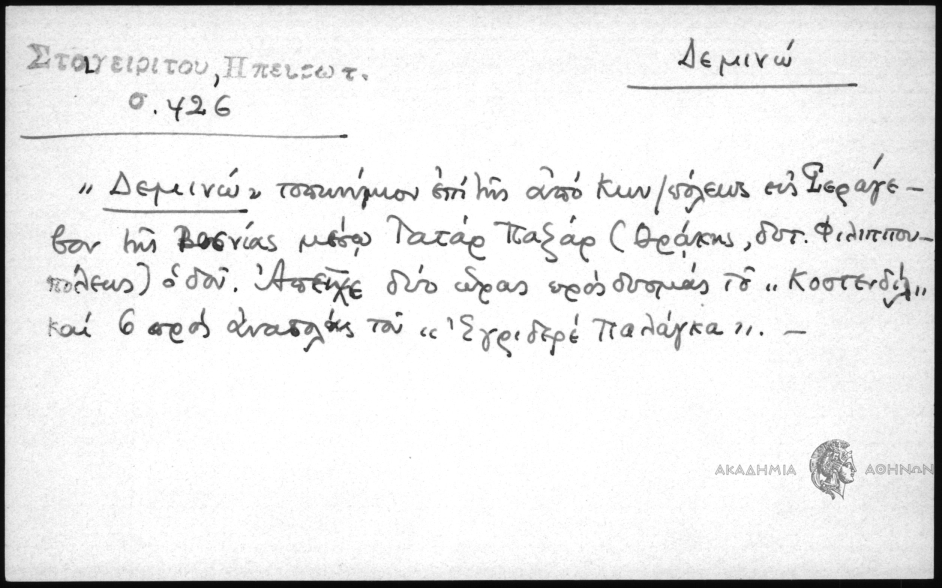 Σταγειρίτου, Ηπειρωτ.
σ. 426
Δεμινώ
„ Δεμινώ" τοπωνύμιον ἐπί τῆς ἀπό Κων/πόλεως εἰς Σεράγε-
βον τῆς Βοσνίας μέσῳ Τατάρ Παζάρ (Θράκης, δυτ. Φιλιππου-
πόλεως) ὁδοῦ. Ἀπεῖχε δύο ὥρας πρός δυσμάς τοῦ „ Κοστενδίλ"
καί 6 πρός ἀνατολάς τοῦ „ Ἐγριδερέ Παλάγκα". -
ΑΚΑΔΗΜΙΑ ΑΘΗΝΩΝ